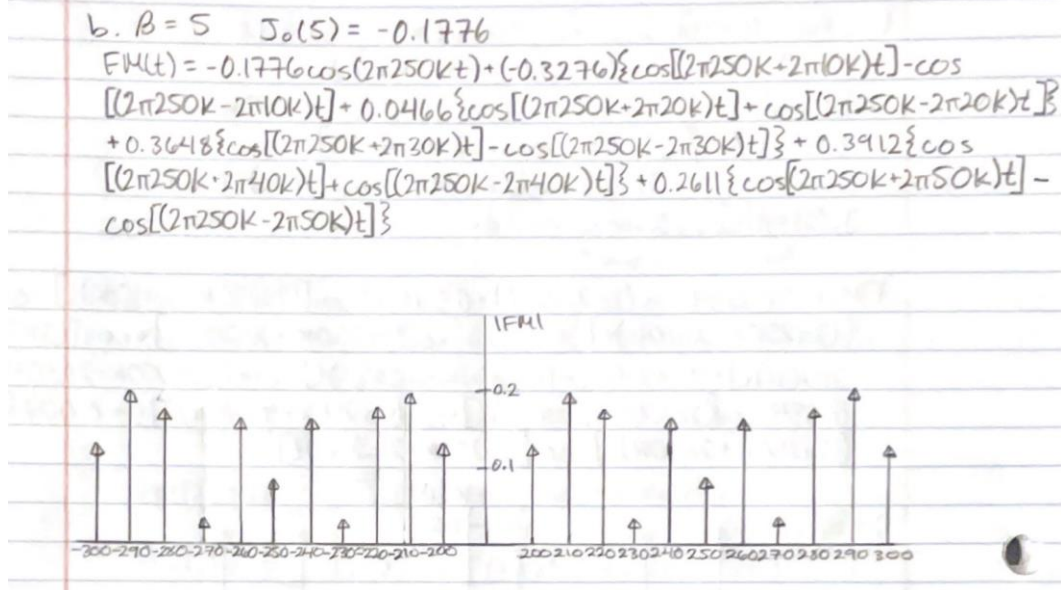 b. β = 5 J₀(5) = -0.1776
FM(t) = -0.1776cos(2π250kt)+(-0.3276){cos[(2π250k+2π10k)t]-cos
[(2π250k-2π10k)t] + 0.0466{cos[(2π250k+2π20k)t] + cos[(2π250k-2π20k)t]}
+0.3648{cos[(2π250k+2π30k)t]-cos[(2π250k-2π30k)t]} + 0.3912{cos
[(2π250k+2π40k)t]+cos[(2π250k-2π40k)t]} + 0.2611{cos[(2π250k+2π50k)t] -
cos[(2π250k-2π50k)t]}
|FM|
0.2
0.1
-300 -290 -280 -270 -260 -250 -240 -230 -220 -210 -200 200 210 220 230 240 250 260 270 280 290 300